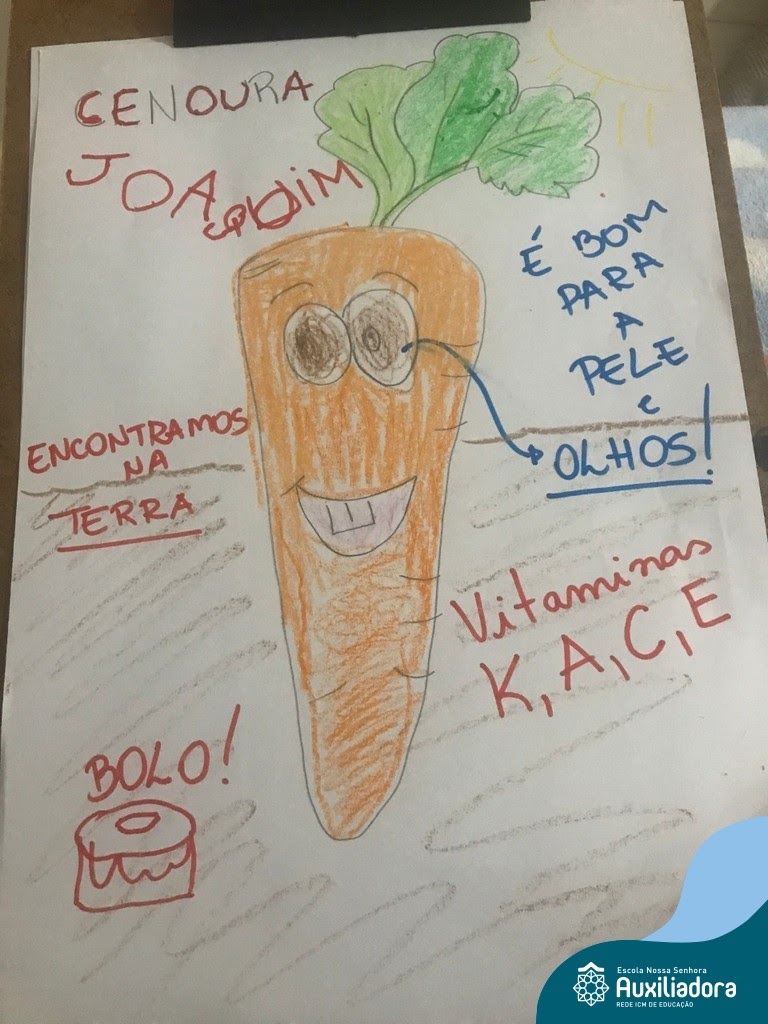 CENOURA
JOAQUIM
É BOM
PARA
A
PELE
E
OLHOS!
ENCONTRAMOS
NA
TERRA
Vitaminas
K, A, C, E
BOLO!
Escola Nossa Senhora
Auxiliadora
REDE ICM DE EDUCAÇÃO